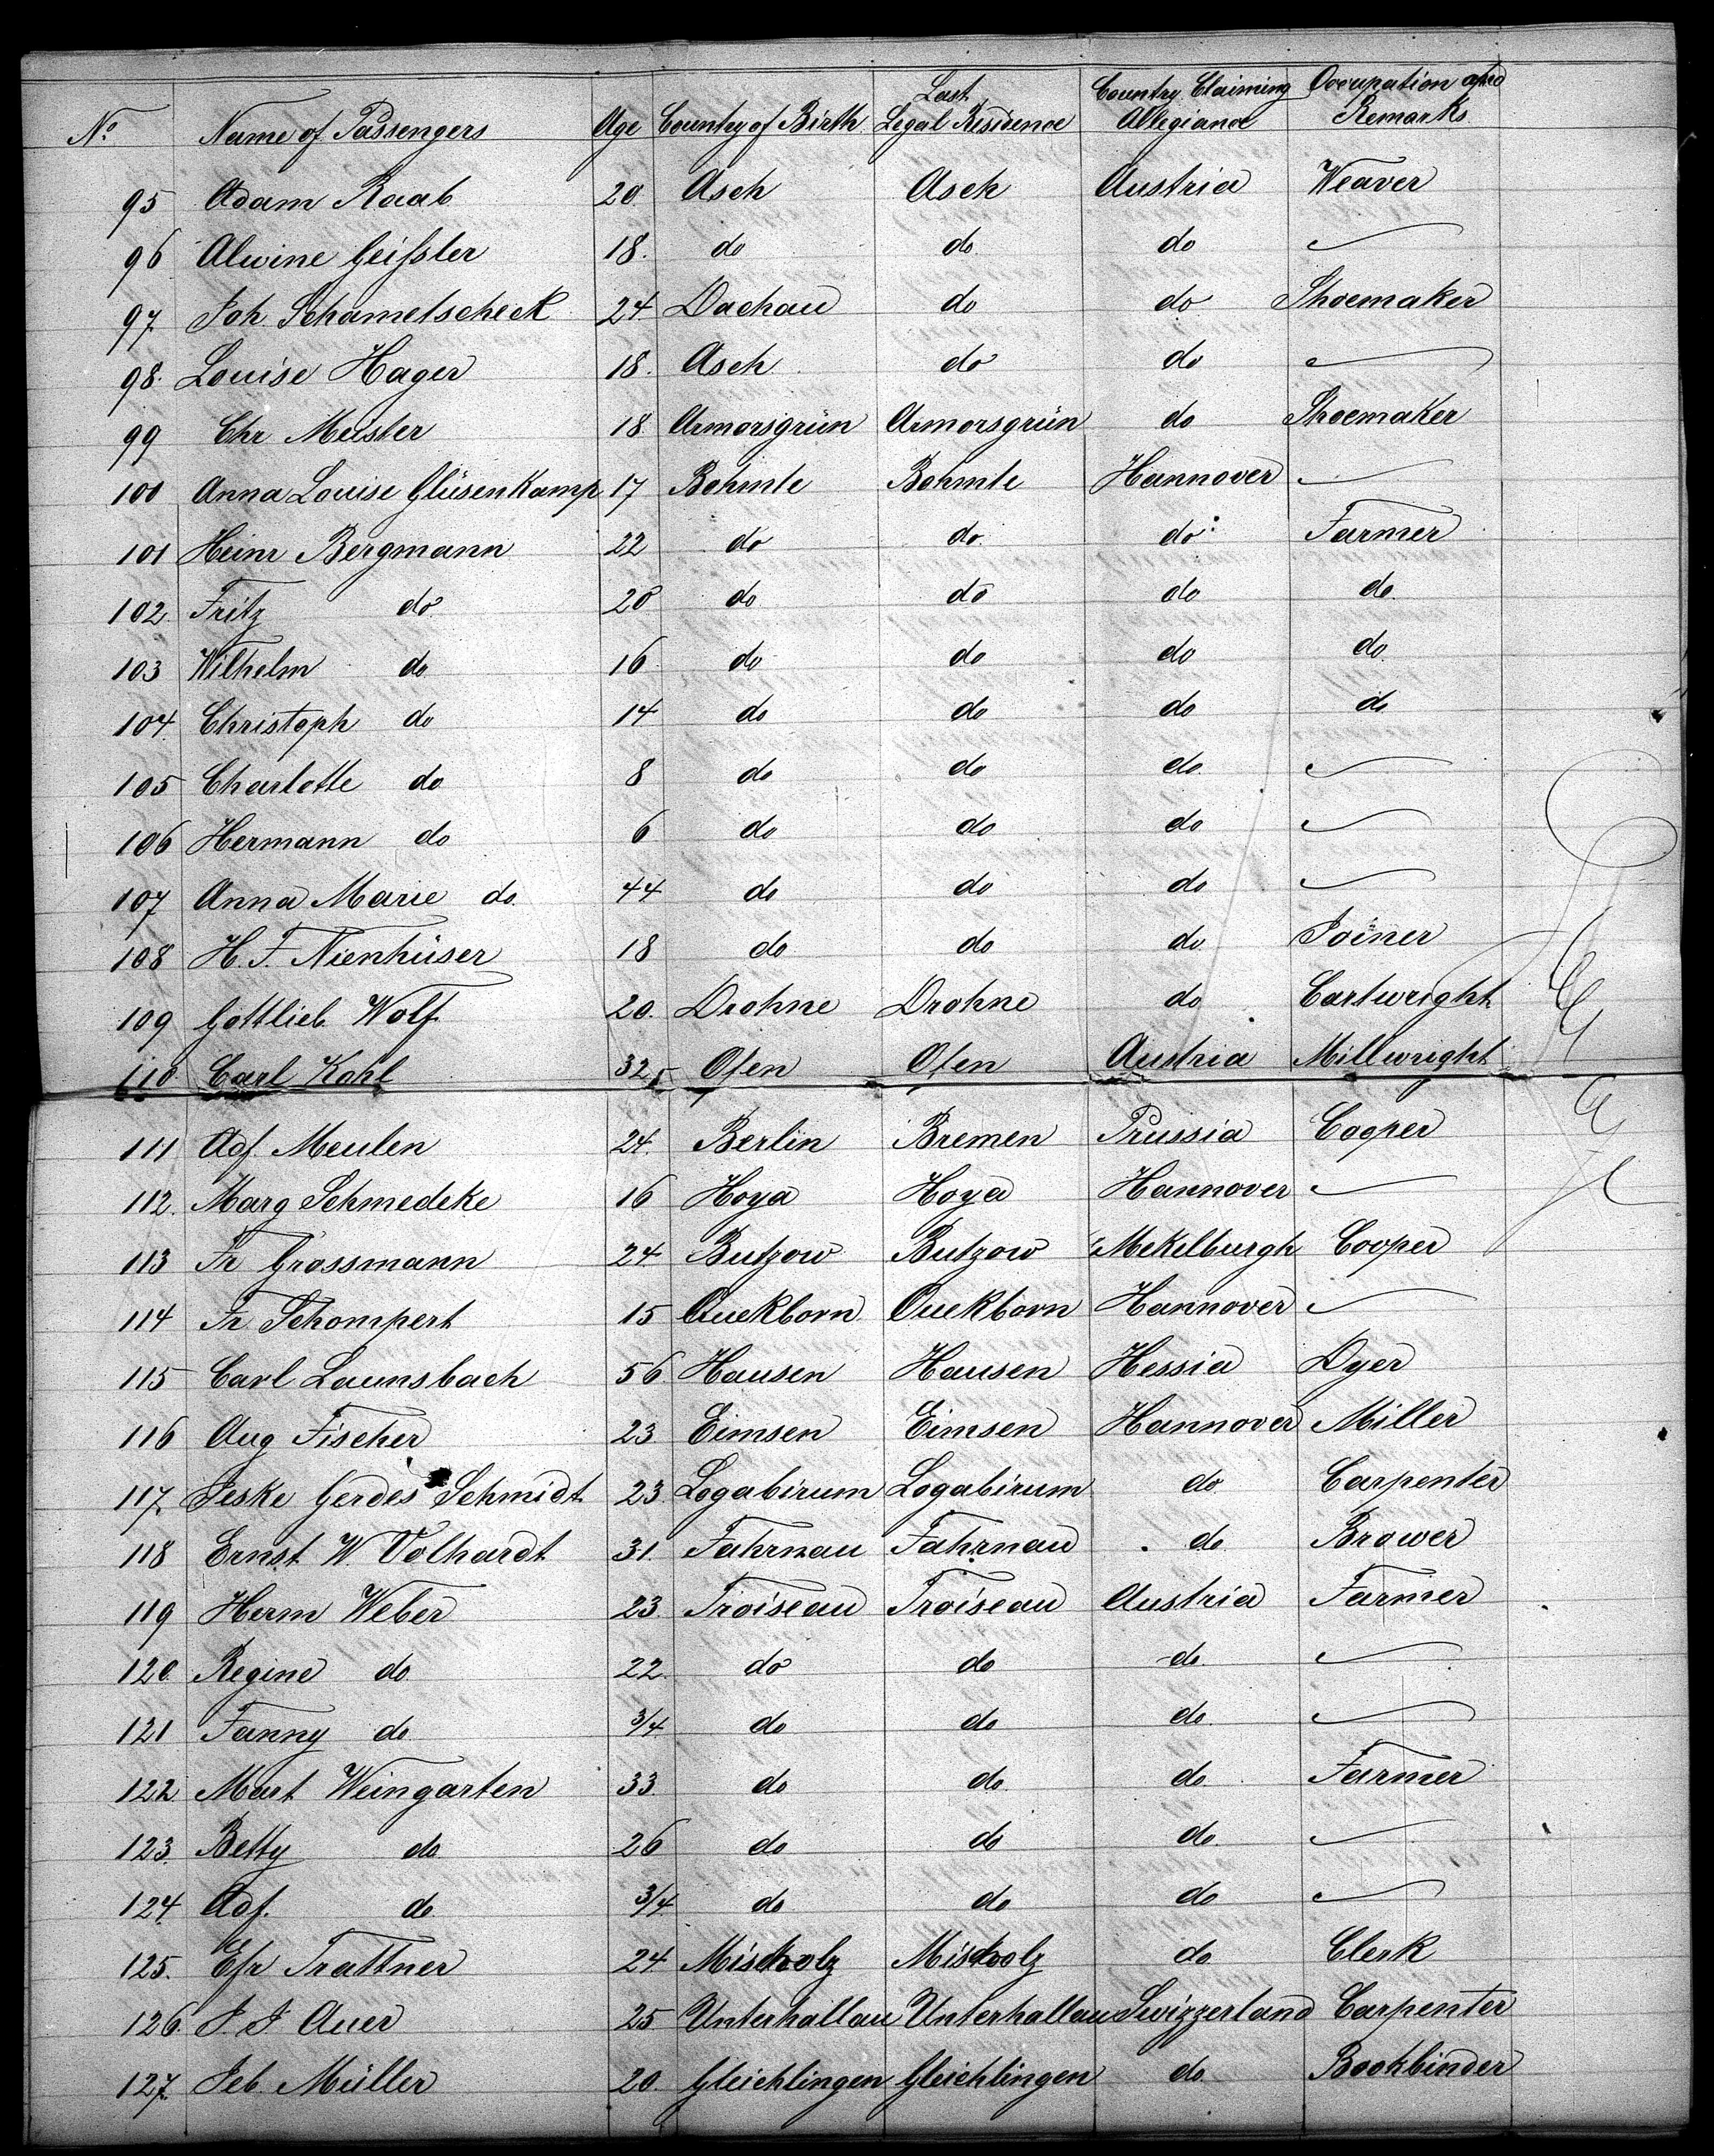 No Name of Passengers Age Country of Birth Last Legal Residence Country Claiming Allegiance Occupation and Remarks
95 Adam Raab 20 Asch Asch Austria Weaver
96 Alwine Geissler 18. do do do
97 Joh. Schametscheck 24 Dachau do do Shoemaker
98. Louise Hager 18. Asch do do
99 Chr Meister 18 Armorsgrün Armorsgrün do Shoemaker
100 Anna Louise Glüsenkamp 17 Bohmte Bohmte Hannover
101 Heinr Bergmann 22 do do. do Farmer
102. Fritz do 20 do do do do.
103 Wilhelm do 16 do do do do.
104. Christoph do 14 do do do do
105 Charlotte do 8 do do do.
106 Hermann do 6 do do do
107 Anna Marie do. 44 do do do
108 H. F. Nienhüser 18 do do do Joiner
109 Gottlieb Wolf 20. Drohne Drohne do Cartwright
110 Carl Kohl 32 Ofen Ofen Austria Millwright
111 Adf. Meulen 24. Berlin Bremen Prussia Cooper
112. Marg Schmedeke 16 Hoya Hoya Hannover
113 Fr Grossmann 24 Butzow Butzow Mekelburgh Cooper
114 Fr Schompert 15 Quekborn Quekborn Hannover
115 Carl Launsbach 56 Hausen Hausen Hessia Dyer
116 Aug Fischer 23 Eimsen Eimsen Hannover Miller
117. Jeske Gerdes Schmidt 23. Logabirum Logabirum do Carpenter
118 Ernst W. Volhardt 31. Fahrnau Fahrnau do Brower
119 Herm Weber 23. Troiseau Troiseau Austria Farmer
120. Regine do. 22. do do do.
121 Fanny do. 3/4. do do do.
122 Mart Weingarten 33. do do. do Farmer
123. Betty do 26 do do do.
124. Adf. do 3/4. do do do
125. Efr Trattner 24 Miskolz Miskolz do Clerk
126. J. J Auer 25 Unterhallau Unterhallau Swizzerland Carpenter
127. Jeb Müller 20. Gleichlingen Gleichlingen do. Bookbinder